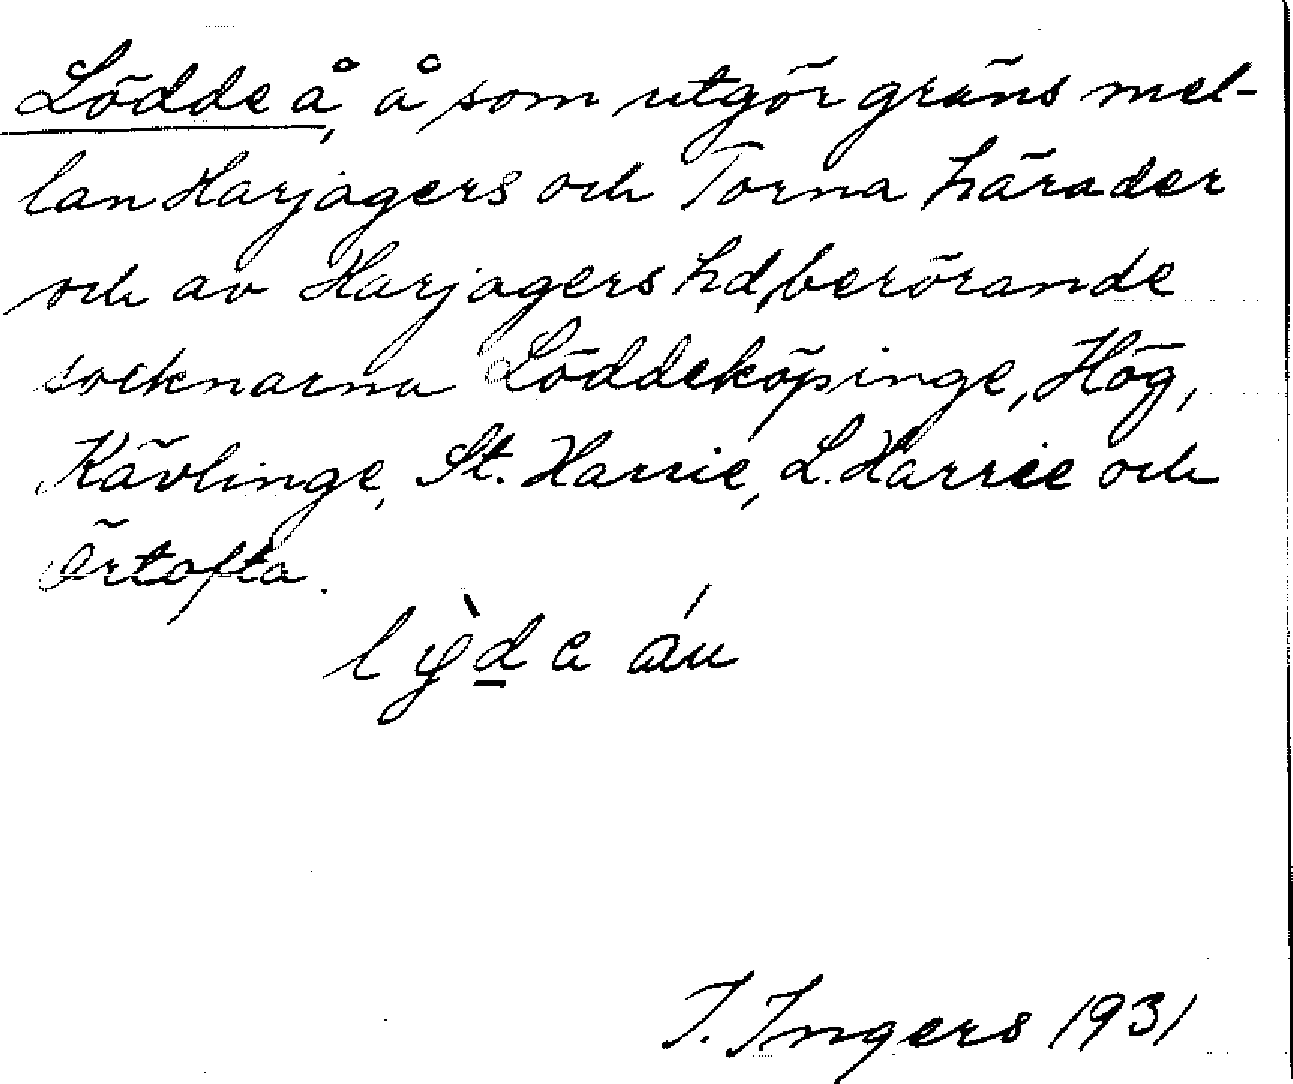 Lödde å, å som utgör gräns mel-
lan Harjagers och Torna härader
och av Harjagers hd berörande
socknarna Löddeköpinge, Hög,
Kävlinge, St. Harrie, L. Harrie och
Örtofta.
I. Ingers 1931